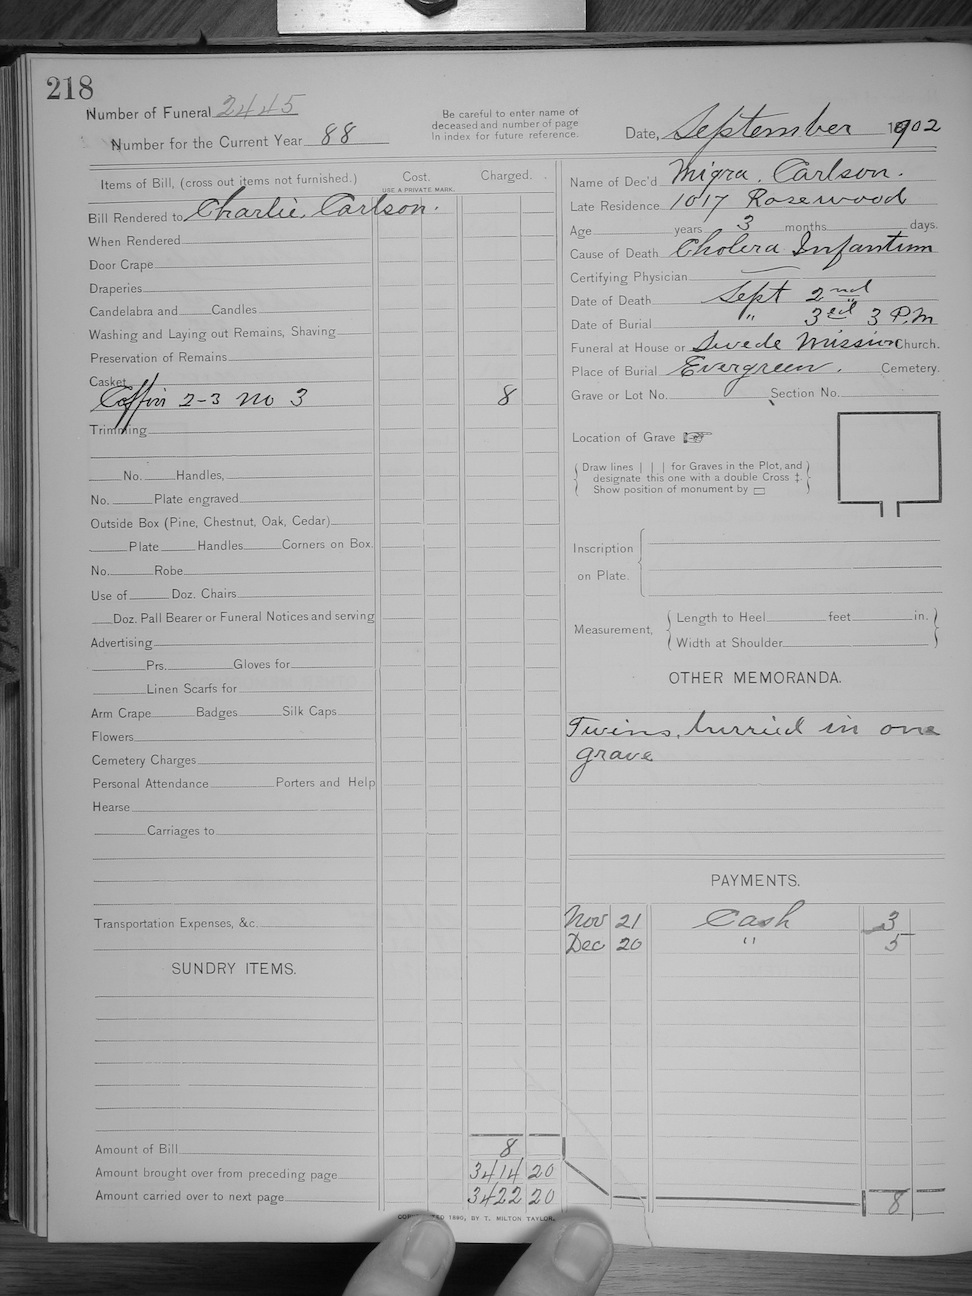 218
Number of Funeral 2445
Number for the Current Year 88
Be careful to enter name of
deceased and number of page
in index for future reference.
Date, September 1902
Items of Bill, (cross out items not furnished.)
Cost.
USE A PRIVATE MARK.
Charged.
Bill Rendered to Charlie Carlson.
When Rendered
Door Crape
Draperies
Candelabra and Candles
Washing and Laying out Remains, Shaving
Preservation of Remains
Casket
Coffin 2-3 no 3 8
Trimming
No. Handles,
No. Plate engraved
Outside Box (Pine, Chestnut, Oak, Cedar)
Plate Handles Corners on Box.
No. Robe
Use of Doz. Chairs
Doz. Pall Bearer or Funeral Notices and serving
Advertising
Prs. Gloves for
Linen Scarfs for
Arm Crape Badges Silk Caps
Flowers
Cemetery Charges
Personal Attendance Porters and Help
Hearse
Carriages to
Transportation Expenses, &c.
SUNDRY ITEMS.
Amount of Bill 8
Amount brought over from preceding page 3414 20
Amount carried over to next page 3422 20
Name of Dec'd Migra. Carlson.
Late Residence 1017 Rosewood
Age years 3 months days.
Cause of Death Cholera Infantum
Certifying Physician —
Date of Death Sept 2nd
Date of Burial " 3rd 3 P.M
Funeral at House or Swede Mission Church.
Place of Burial Evergreen. Cemetery.
Grave or Lot No. Section No.
Location of Grave
Draw lines | | | for Graves in the Plot, and
designate this one with a double Cross ‡.
Show position of monument by ▭
Inscription
on Plate.
Measurement,
Length to Heel feet in.
Width at Shoulder
OTHER MEMORANDA.
Twins, burried in one
grave
PAYMENTS.
Nov 21 Cash 3
Dec 20 " 5
8
COPYRIGHTED 1890, BY T. MILTON TAYLOR.